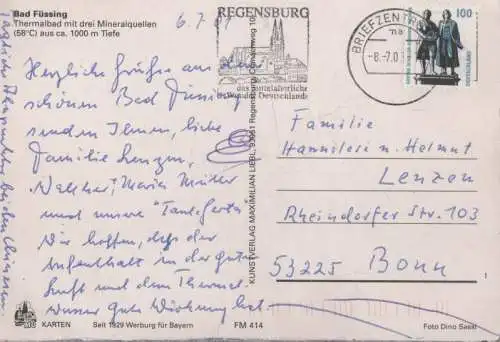 Bad Füssing
Thermalbad mit drei Mineralquellen
(58°C) aus ca. 1000 m Tiefe
6.7.01
Herzliche Grüße aus dem
schönen Bad Füssing
senden Ihnen, liebe
Familie Lenzen,
Maria Müller
und unsere "Tante
Wir hoffen, daß der
Aufenthalt in der guten
Luft und dem Thermal-
wasser gute Wirkung hat.
täglich bei den
KARTEN
Seit 1929 Werbung für Bayern
FM 414
KUNSTVERLAG MAXIMILIAN LIEBL, 93051 Regensburg
REGENSBURG
das mittelalterliche
Wunder Deutschlands
BRIEFZENTR
ma
-8.-7.0
100
DEUTSCHLAND
Familie
Hannelore u. Helmut
Lenzen
Rheindorfer Str. 103
53225 Bonn
Foto Dino Sassi